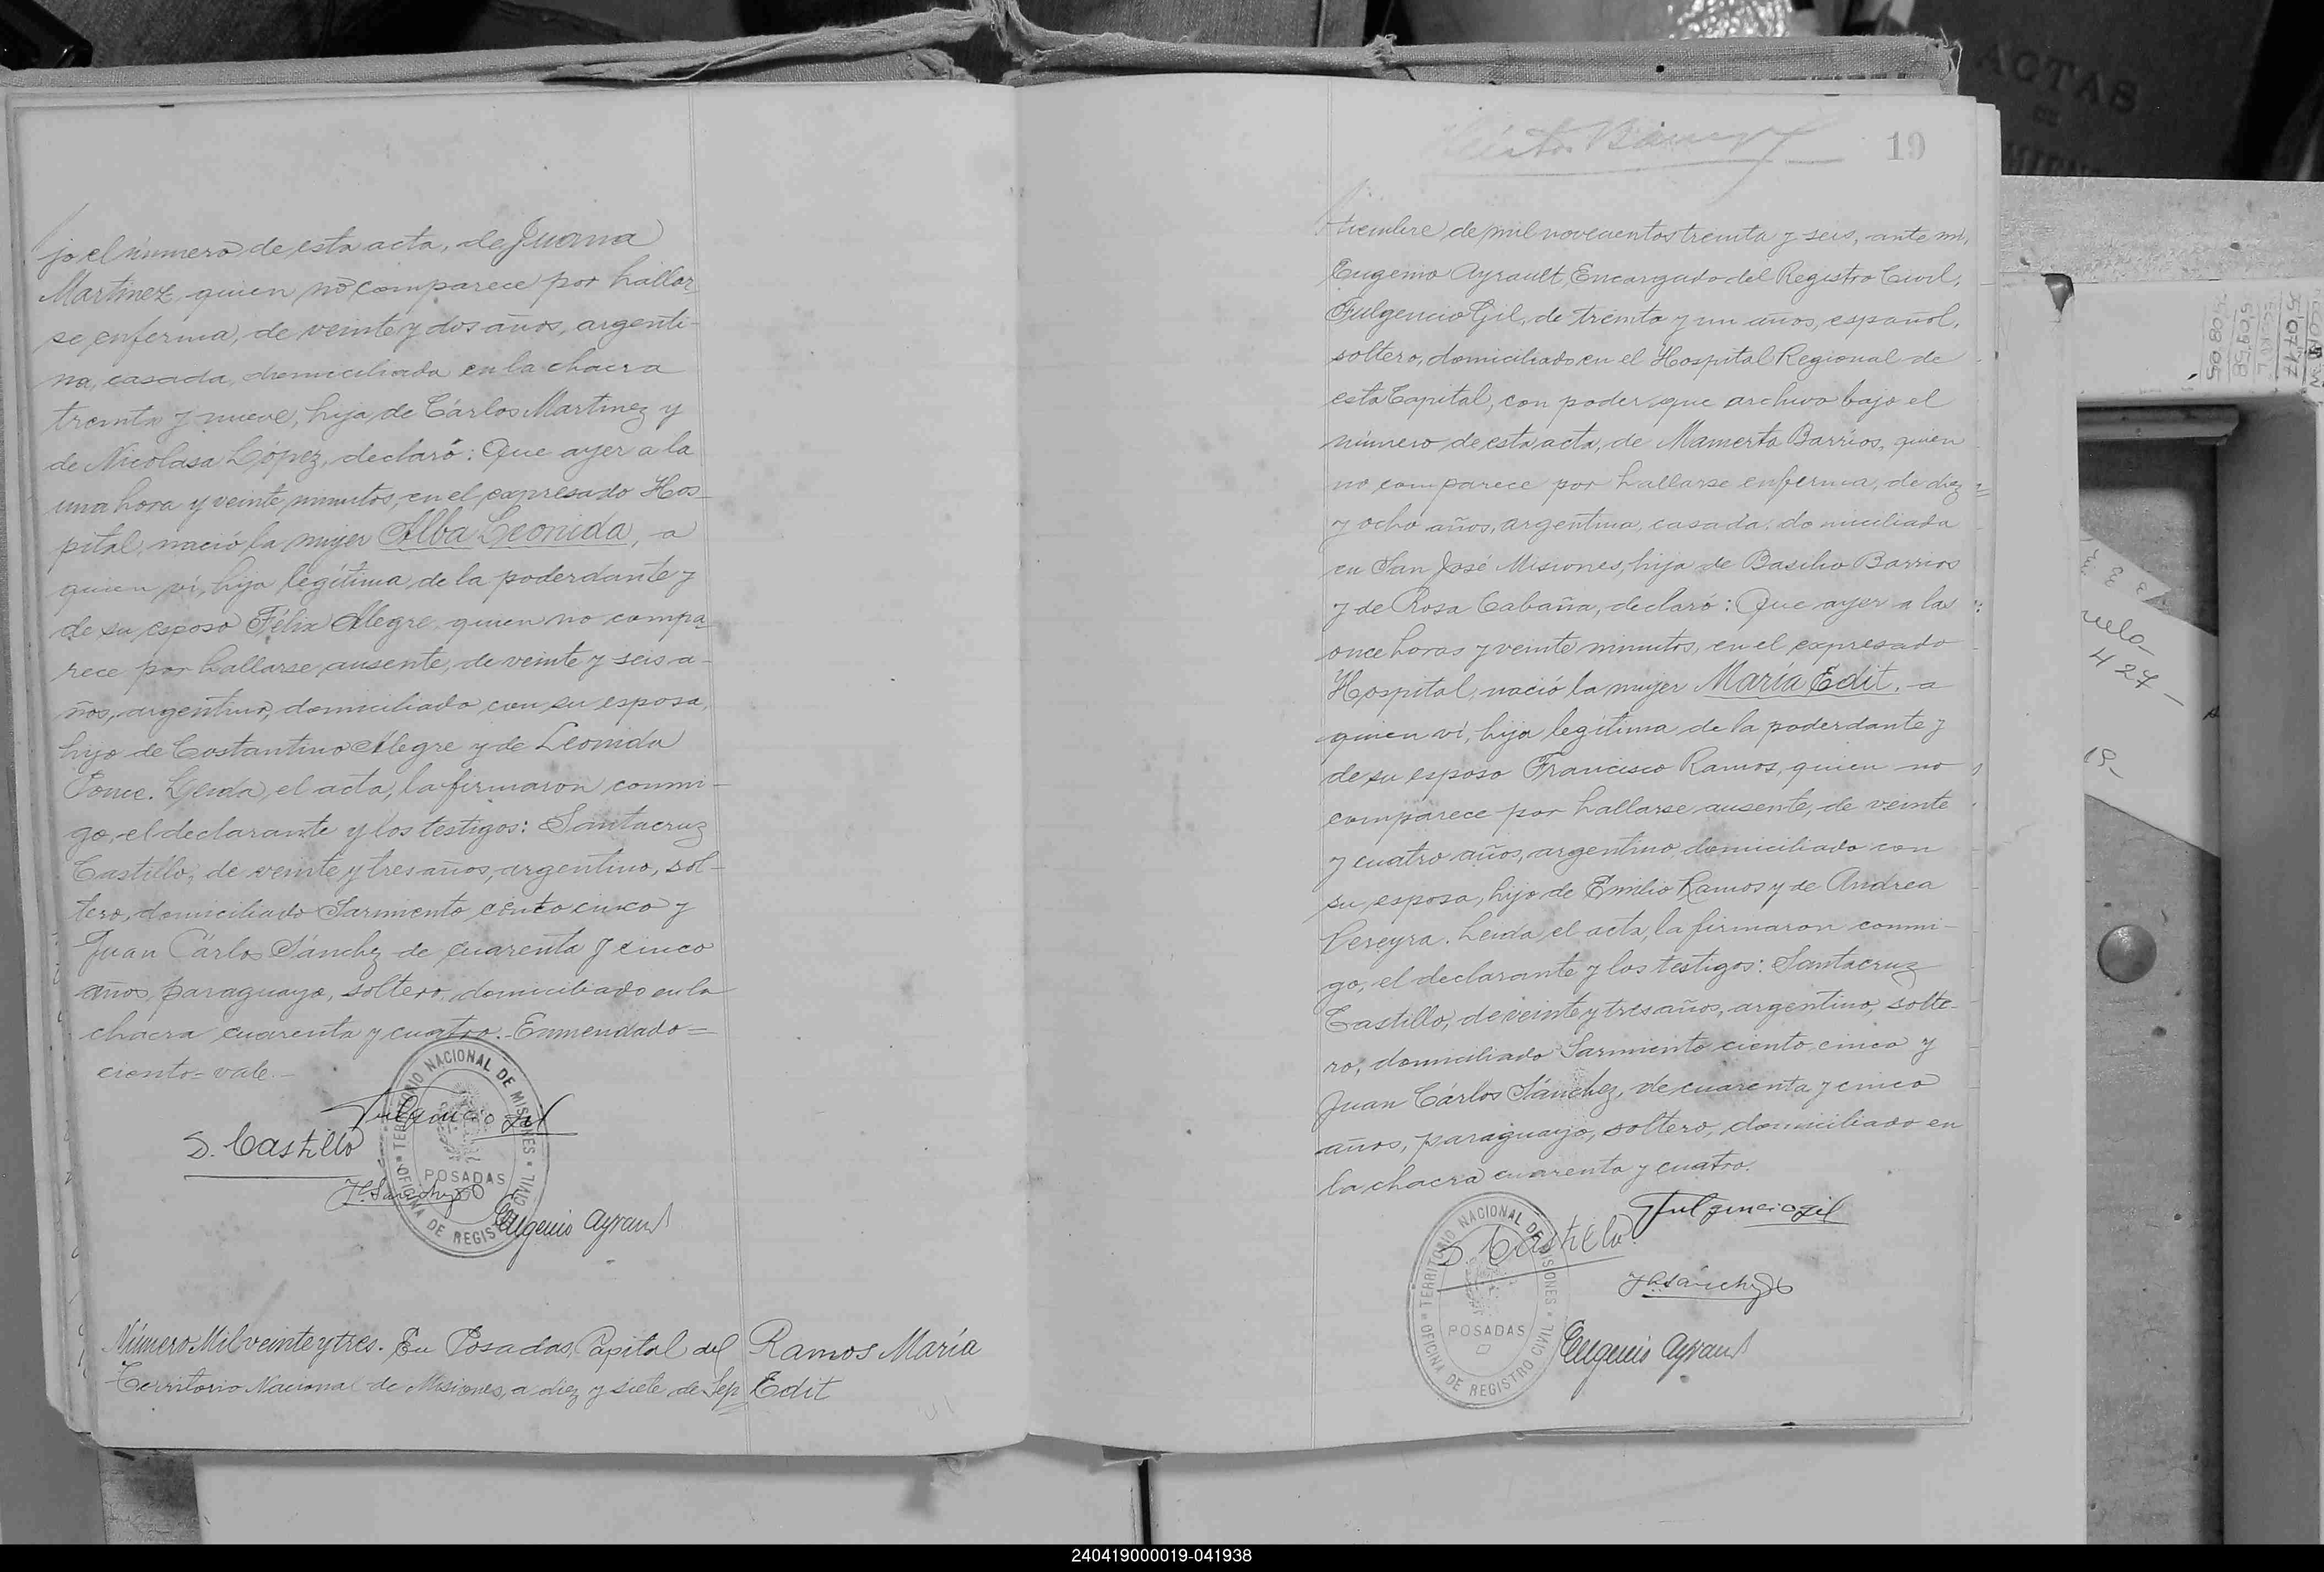 jo el número de esta acta, de Juana
Martinez quien no comparece por hallar-
se enferma, de veinte y dos años, argenti-
na, casada, domiciliada en la chacra
treinta y nueve, hija de Cárlos Martinez y
de Nicolasa López, declaró: Que ayer a la
una hora y veinte minutos, en el expresado Hos-
pital, nació la mujer Alba Leonida, a
quien ví, hija legítima de la poderdante y
de su esposo Félix Alegre, quien no compa-
rece por hallarse ausente, de veinte y seis a-
ños, argentino, domiciliado con su esposa,
hijo de Costantino Alegre y de Leonida
Ponce. Leida, el acta, la firmaron conmi-
go, el declarante y los testigos: Santacruz
Castillo, de veinte y tres años, argentino, sol-
tero, domiciliado Sarmiento ciento cinco y
Juan Cárlos Sánchez de cuarenta y cinco
años, paraguayo, soltero, domiciliado en la
chacra cuarenta y cuatro. Enmendado=
ciento=vale.-
Fulgencio Gil
S. Castillo
JC Sanchez
Eugenio Ayrault
TERRITORIO NACIONAL DE MISIONES
POSADAS
OFICINA DE REGISTRO CIVIL
Número Mil veinte y tres. En Posadas, Capital del
Territorio Nacional de Misiones, a diez y siete de Sep
Ramos María
Edit
19
tiembre de mil novecientos treinta y seis, ante mí,
Eugenio Ayrault, Encargado del Registro Civil,
Fulgencio Gil, de treinta y un años, español,
soltero, domiciliado en el Hospital Regional de
esta Capital, con poder que archivo bajo el
número de esta acta, de Mamerta Barrios, quien
no comparece por hallarse enferma, de diez
y ocho años, argentina, casada, domiciliada
en San José Misiones, hija de Basilio Barrios
y de Rosa Cabaña, declaró: Que ayer a las
once horas y veinte minutos, en el expresado
Hospital, nació la mujer María Edit, a
quien ví, hija legítima de la poderdante y
de su esposo Francisco Ramos, quien no
comparece por hallarse ausente, de veinte
y cuatro años, argentino, domiciliado con
su esposa, hijo de Emilio Ramos y de Andrea
Pereyra. Leida el acta, la firmaron conmi-
go, el declarante y los testigos: Santacruz
Castillo, de veinte y tres años, argentino, solte-
ro, domiciliado Sarmiento ciento cinco y
Juan Cárlos Sánchez, de cuarenta y cinco
años, paraguayo, soltero, domiciliado en
la chacra cuarenta y cuatro.
Fulgencio Gil
S Castillo
JC Sanchez
Eugenio Ayrault
TERRITORIO NACIONAL DE MISIONES
POSADAS
OFICINA DE REGISTRO CIVIL
ACTAS
DE
427
240419000019-041938